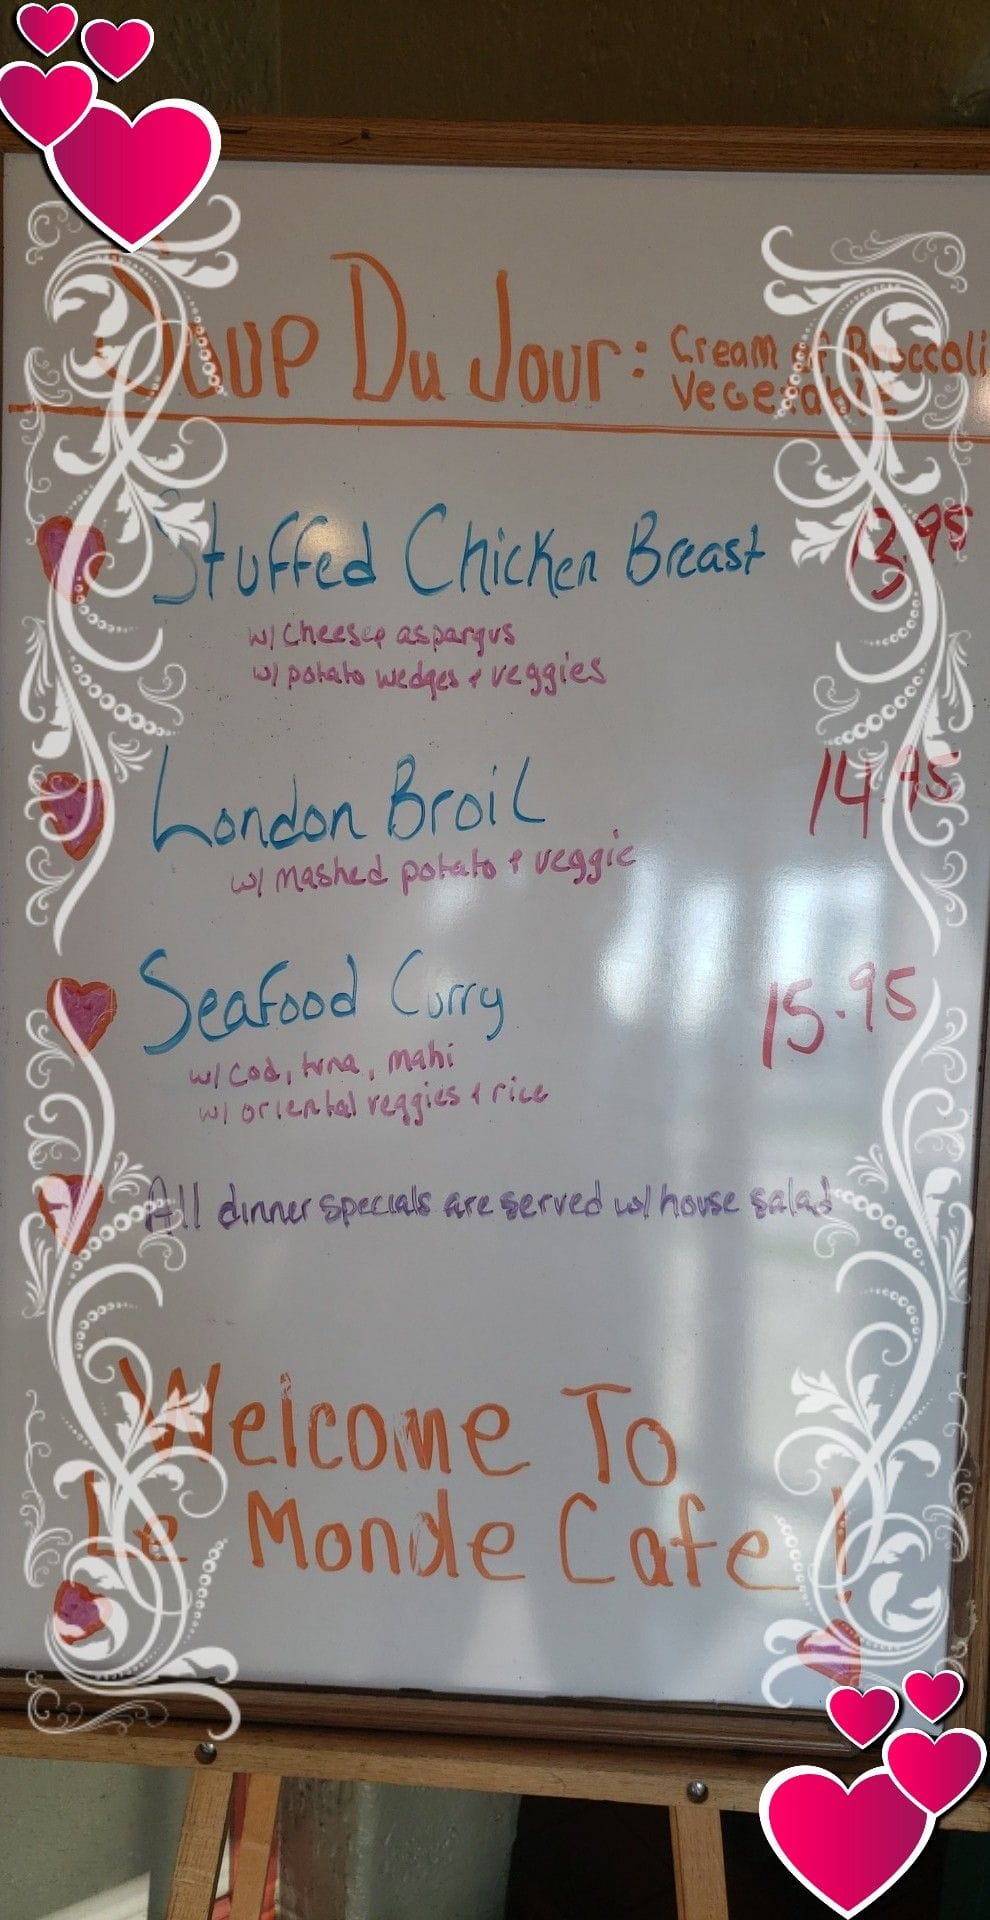 Soup Du Jour: Cream of Broccoli
Vegetable
Stuffed Chicken Breast 13.95
w/ cheese & aspargus
w/ potato wedges & veggies
London Broil 14.95
w/ mashed potato & veggie
Seafood Curry 15.95
w/ cod, tuna, mahi
w/ oriental veggies & rice
All dinner specials are served w/ house salad
Welcome To
Le Monde Cafe!